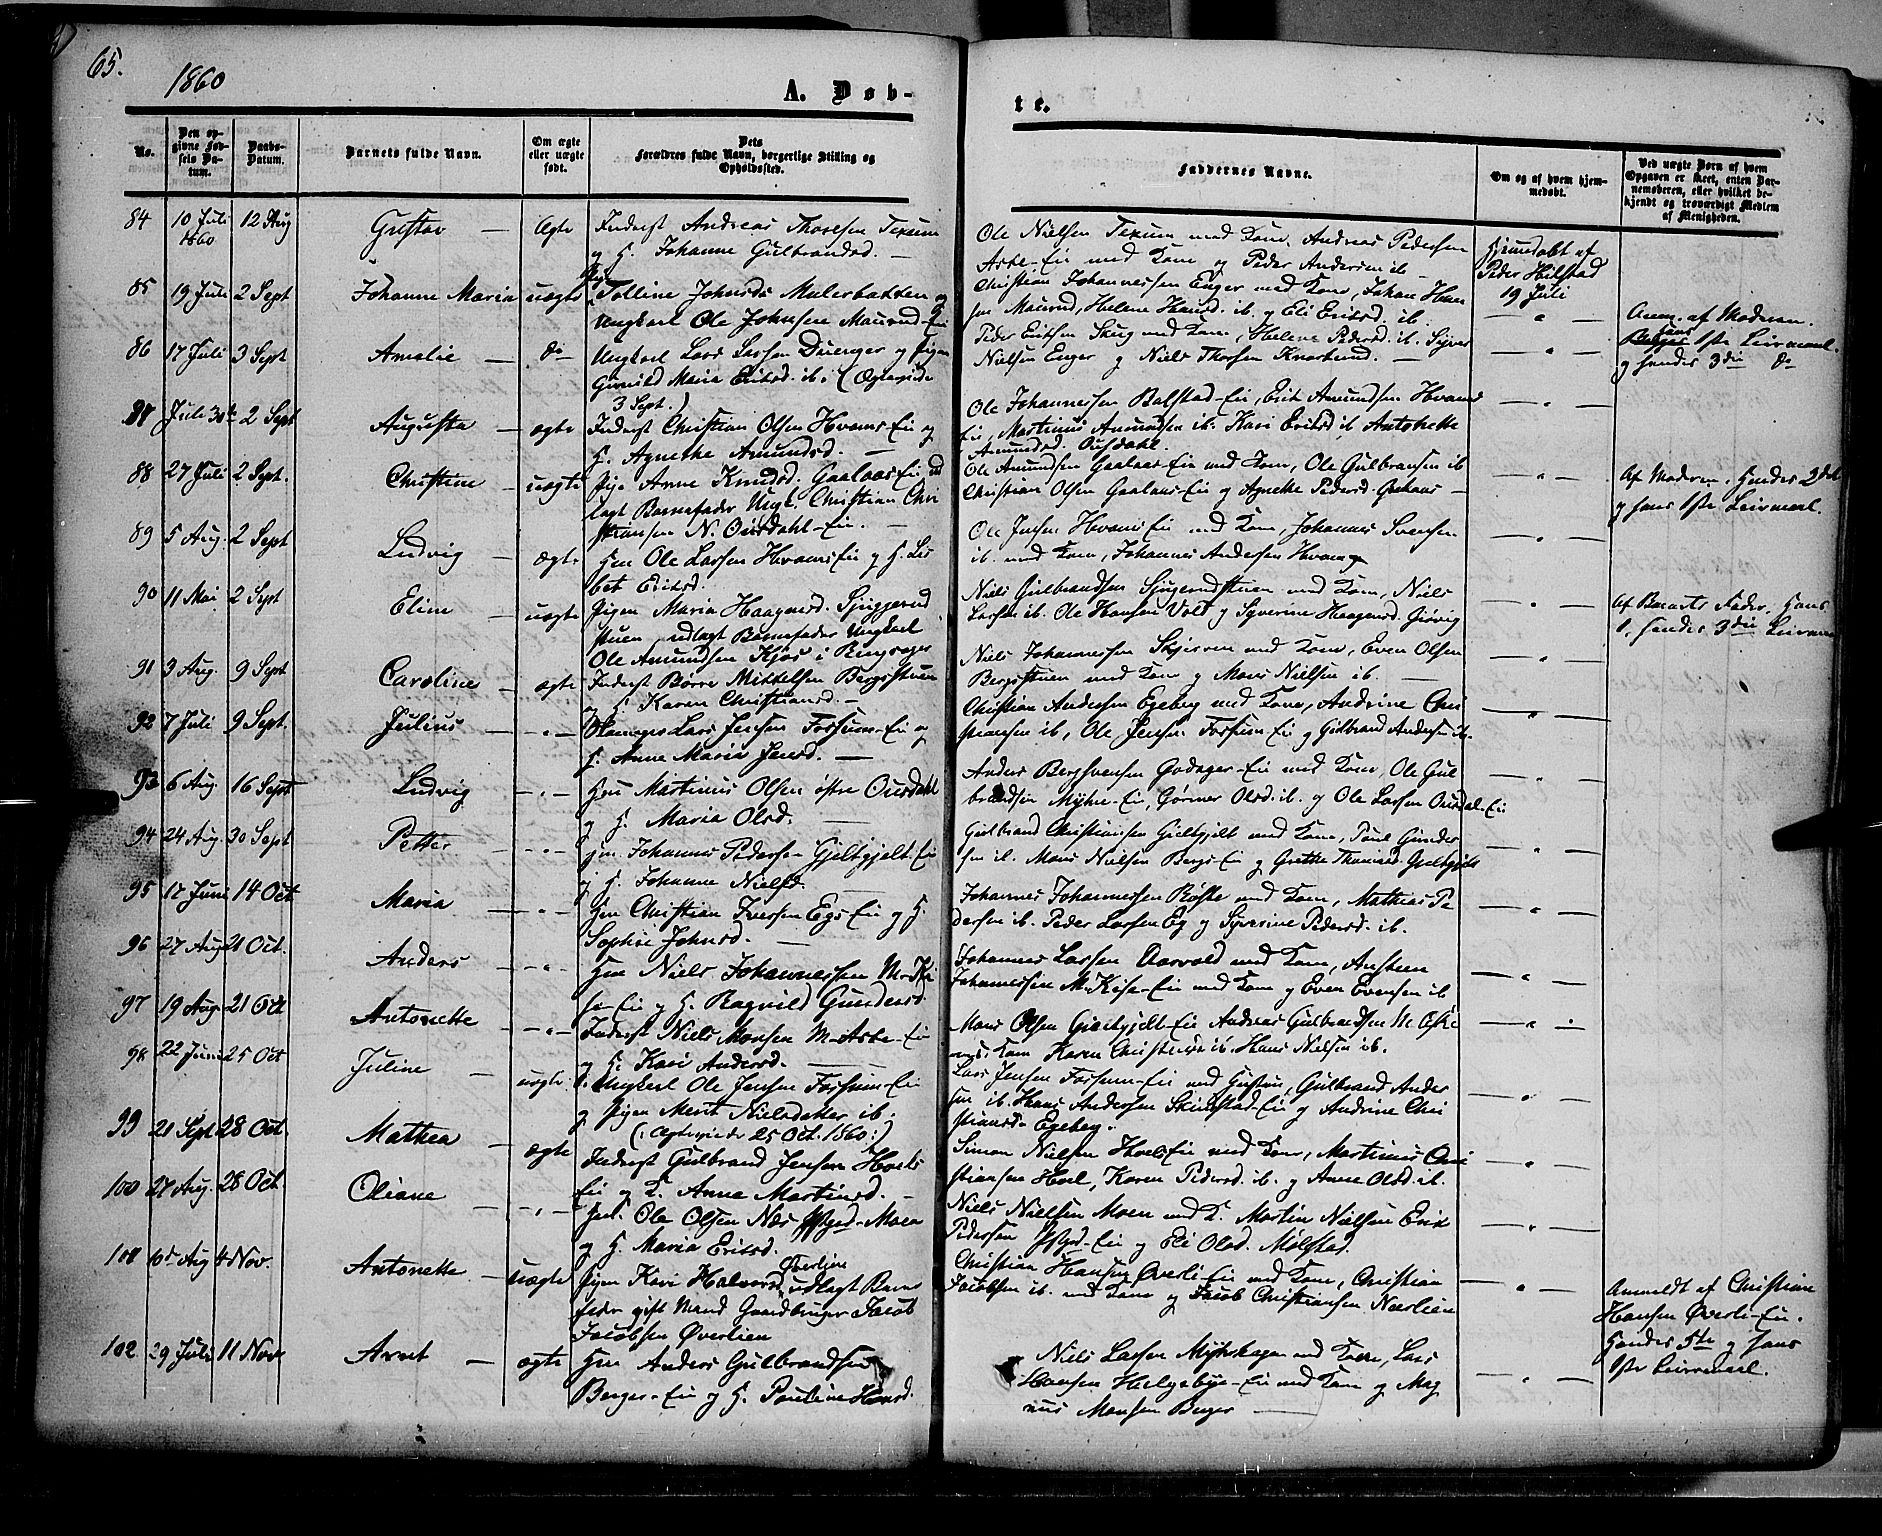 65.
1860
A. Døb-
te.
No.
Den op-
givne Fød-
sels Da-
tum.
Daabs-
Datum.
Barnets fulde Navn.
Om ægte
eller uægte
født.
Dets
Forældres fulde Navn, borgerlige Stilling og
Opholdssted.
Faddernes Navne.
Om og af hvem hjem-
medøbt.
Ved uægte Børn af hvem
Opgaven er skeet, enten Bar-
nemoderen, eller hvilket be-
kjendt og troværdigt Medlem
af Menigheden.
84 10 Juli 1860 12 Aug Gustav — Ægte
Inderst Andreas Thoresen Texum
og H. Johanne Gulbrandsd. —
Ole Nielsen Texum med Kone, Andreas Pedersen
Arbo-Eie med Kone og Peder Andersen ib —
Hjemdøbt af
Peder Hilstad
19 Juli
85 19 Juli 2 Sept Johanne Maria uægte
Pige Tolline Johnsd. Malerbakken og
Ungkarl Ole Johnsen Maurud-Eie
Christian Johannessen Enger med Kone, Johan Han
sen Maurud, Helene Hansd. ib. og Eli Eriksd. ib.
Anm. af Moderen.
hans 1ste Leiermaal.
og hendes 3die do
86 17 Juli 3 Sept Amalie — do
Ungkarl Lars Larsen Duenger og Pigen
Gunild Maria Eriksd. ib. (Ægteviede
3 Sept.)
Peder Eriksen Skug med Kone, Helene Pedersd. ib. Syver
Nielsen Enger og Niels Thorsen
87 Juli 30te 2 Sept Augusta — ægte
Inderst Christian Olsen Hvams-Eie og
H. Agnethe Amundsd. —
Ole Johannessen Balstad-Eie, Erik Amundsen Hvams
Eie, Martinus Amundsen ib. Kari Eriksd. ib Antonette
Amundsd. Ousdahl.
88 27 Juli 2 Sept. Christine — uægte
Pige Anne Knudsd. Gaalaas-Eie ud
lagt Barnefader Ungk. Christian Chri
stiansen N. Ousdahl-Eie. —
Ole Amundsen Gaalaas-Eie med Kone, Ole Gulbransen ib
Christian Olsen Gaalaas-Eie og Agnethe Pedersd.
Af Moderen. Hendes 2det
og hans 1ste Leiermaal.
89 5 Aug. 2 Sept Ludvig — ægte
Hmd Ole Larsen Hvams-Eie og H. Lis
bet Eriksd.
Ole Jensen Hvams-Eie med Kone, Johannes Svensen
ib. med Kone, Johannes Andersen Hvam
90 11 Mai 2 Sept Eline — uægte
Pigen Maria Haagensd. Sjuggerud
stuen, udlagt Barnefader Ungkarl
Ole Amundsen Kjos i Ringsager
Niels Gulbrandsen Sjugerudstuen med Kone, Niels
Larsen ib. Ole Hansen Volt og Syverine Haagensd. Gjøvig
Af Barnets Fader. Hans
1. hendes 3die Leierm.
91 3 Aug. 9 Sept Caroline — ægte
Inderst Børre Mikkelsen Bergsstuen
og H. Karen Christiansd. —
Niels Johannessen Skjerven med Kone, Even Olsen
Bergsstuen med Kone og Mons Nielsen ib. —
92 7 Juli 9 Sept. Julius — — " —
Lars Jensen Fossum-Eie og
H. Anne Maria Jensd. —
Christian Andersen Egeberg med Kone, Andrine Chri
stiansen ib, Ole Jensen Fossum-Eie og Gulbrand Andersen ib.
93 6 Aug. 16 Sept Ludvig — " —
Hmd Martinus Olsen østre Ousdahl
og H. Maria Olsd. —
Anders Bergsvensen Godager-Eie med Kone, Ole Gul
brandsen Myhre-Eie, Gørner Olsd. ib. og Ole Larsen Ousdal-Eie
94 24 Aug. 30 Sept Petter — " —
Hmd. Johannes Pedersen Gjeltgjelt-Eie
og H. Johanne Nielsd.
Gulbrand Christiansen Gieltgjelt med Kone, Poul Gunder
sen ib. Mons Nielsen Bergs-Eie og Grethe
95 17 Juni 14 Oct Maria — " —
Hmd Christian Iversen Egs-Eie og H.
Sophie Johnsd. —
Johannes Johannessen Røste med Kone, Mathias Pe
dersen ib. Peder Larsen Eg og Syverine Pedersd. ib.
96 27 Aug 21 Oct. Anders — " —
Hmd Niels Johannessen M-Ki
se-Eie og H. Ragnild Gundersd.
Johannes Larsen Aarvold med Kone, Austeen
Johannessen M. Kise-Eie med Kone og Even Evensen ib
97 19 Aug 21 Oct Antonette — " —
Inderst Niels Monsen M-Arbo-Eie
og H. Kari Andersd. —
Mons Olsen Gieltgjelt-Eie Andreas Gulbrandsen
Kone Karen ib. Hans Nielsen ib.
98 22 Juni 25 Oct Juline — uægte
Ungkarl Ole Jensen Fossum-Eie
og Pigen Marit Nielsdatter ib.
(: Ægteviede 25 Oct. 1860 :)
Lars Jensen Fossum-Eie med Hustru, Gulbrand Ander
sen ib. Hans Andersen Skinstad-Eie og Andrine Chri
stiansd. Egeberg.
99 21 Sept 28 Oct. Mathea — ægte
Inderst Gulbrand Jensen Hoels
Eie og K. Anne Martinsd. —
Simon Nielsen Hoels-Eie med Kone, Martinus Chri
stiansen Hoel, Karen Pedersd. ib. og Anne Olsd. ib.
100 27 Aug. 28 Oct. Oliane — " —
Ole Olsen Næs Moen
og H. Maria Eriksd.
Niels Nielsen Moen med K. Martin Nielsen Erik
Pedersen og Eli Olsd. Mølstad.
101 10de Aug 4 Nov. Antonette — uægte
Pigen Kari Halvorsd. Øverlien udlagt Barne
fader gift Mand Gaardbruger Jacob
Jacobsen Øverlien
Christian Hansen Øverli-Eie med Kone, Christian
Jacobsen ib. med Kone og Jacob Christiansen Nærlien
Anmeldt af Christian
Hansen Øverli-Eie.
Hendes 5te og hans
1ste Leiermaal.
102 29 Juli 11 Nov Arnt — ægte
Hmd Anders Gulbrandsen
Berger-Eie og H. Pauline Hansd.
Niels Larsen med Kone, Lars
Hansen Helgeby-Eie med Kone og Mag
nus Monsen Berger —